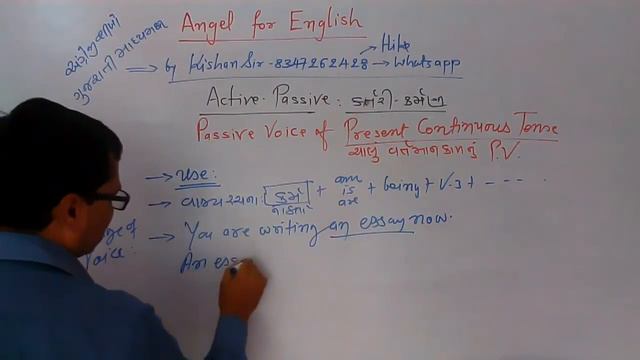 Angel for English
અંગ્રેજી શીખો
ગુજરાતી માધ્યમમાં
Hike
by Kishan Sir - 8347262428 → Whatsapp
Active-Passive : કર્તરી - કર્મણી
Passive Voice of Present Continuous Tense
ચાલુ વર્તમાનકાળનું P.V.
→ Use:
→ વાક્યરચના: કર્મ + am is are + being + V-3 + - - - -
You are writing an essay now.
Voice:
An ess